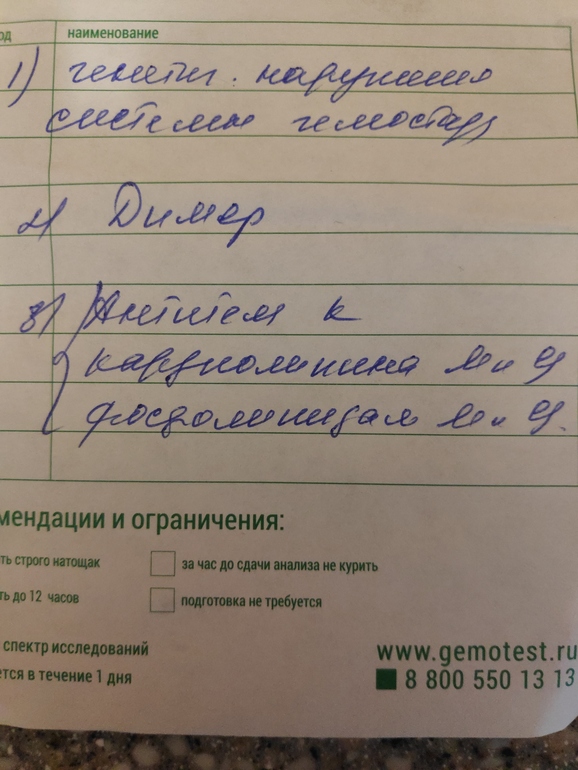 од наименование
1) генетич. нарушения
системы гемостаза
2) Димер
3) Антител к
кардиолипина M и G
фосфолипидам M и G.
мендации и ограничения:
ть строго натощак за час до сдачи анализа не курить
ть до 12 часов подготовка не требуется
спектр исследований www.gemotest.ru
ется в течение 1 дня 8 800 550 13 13